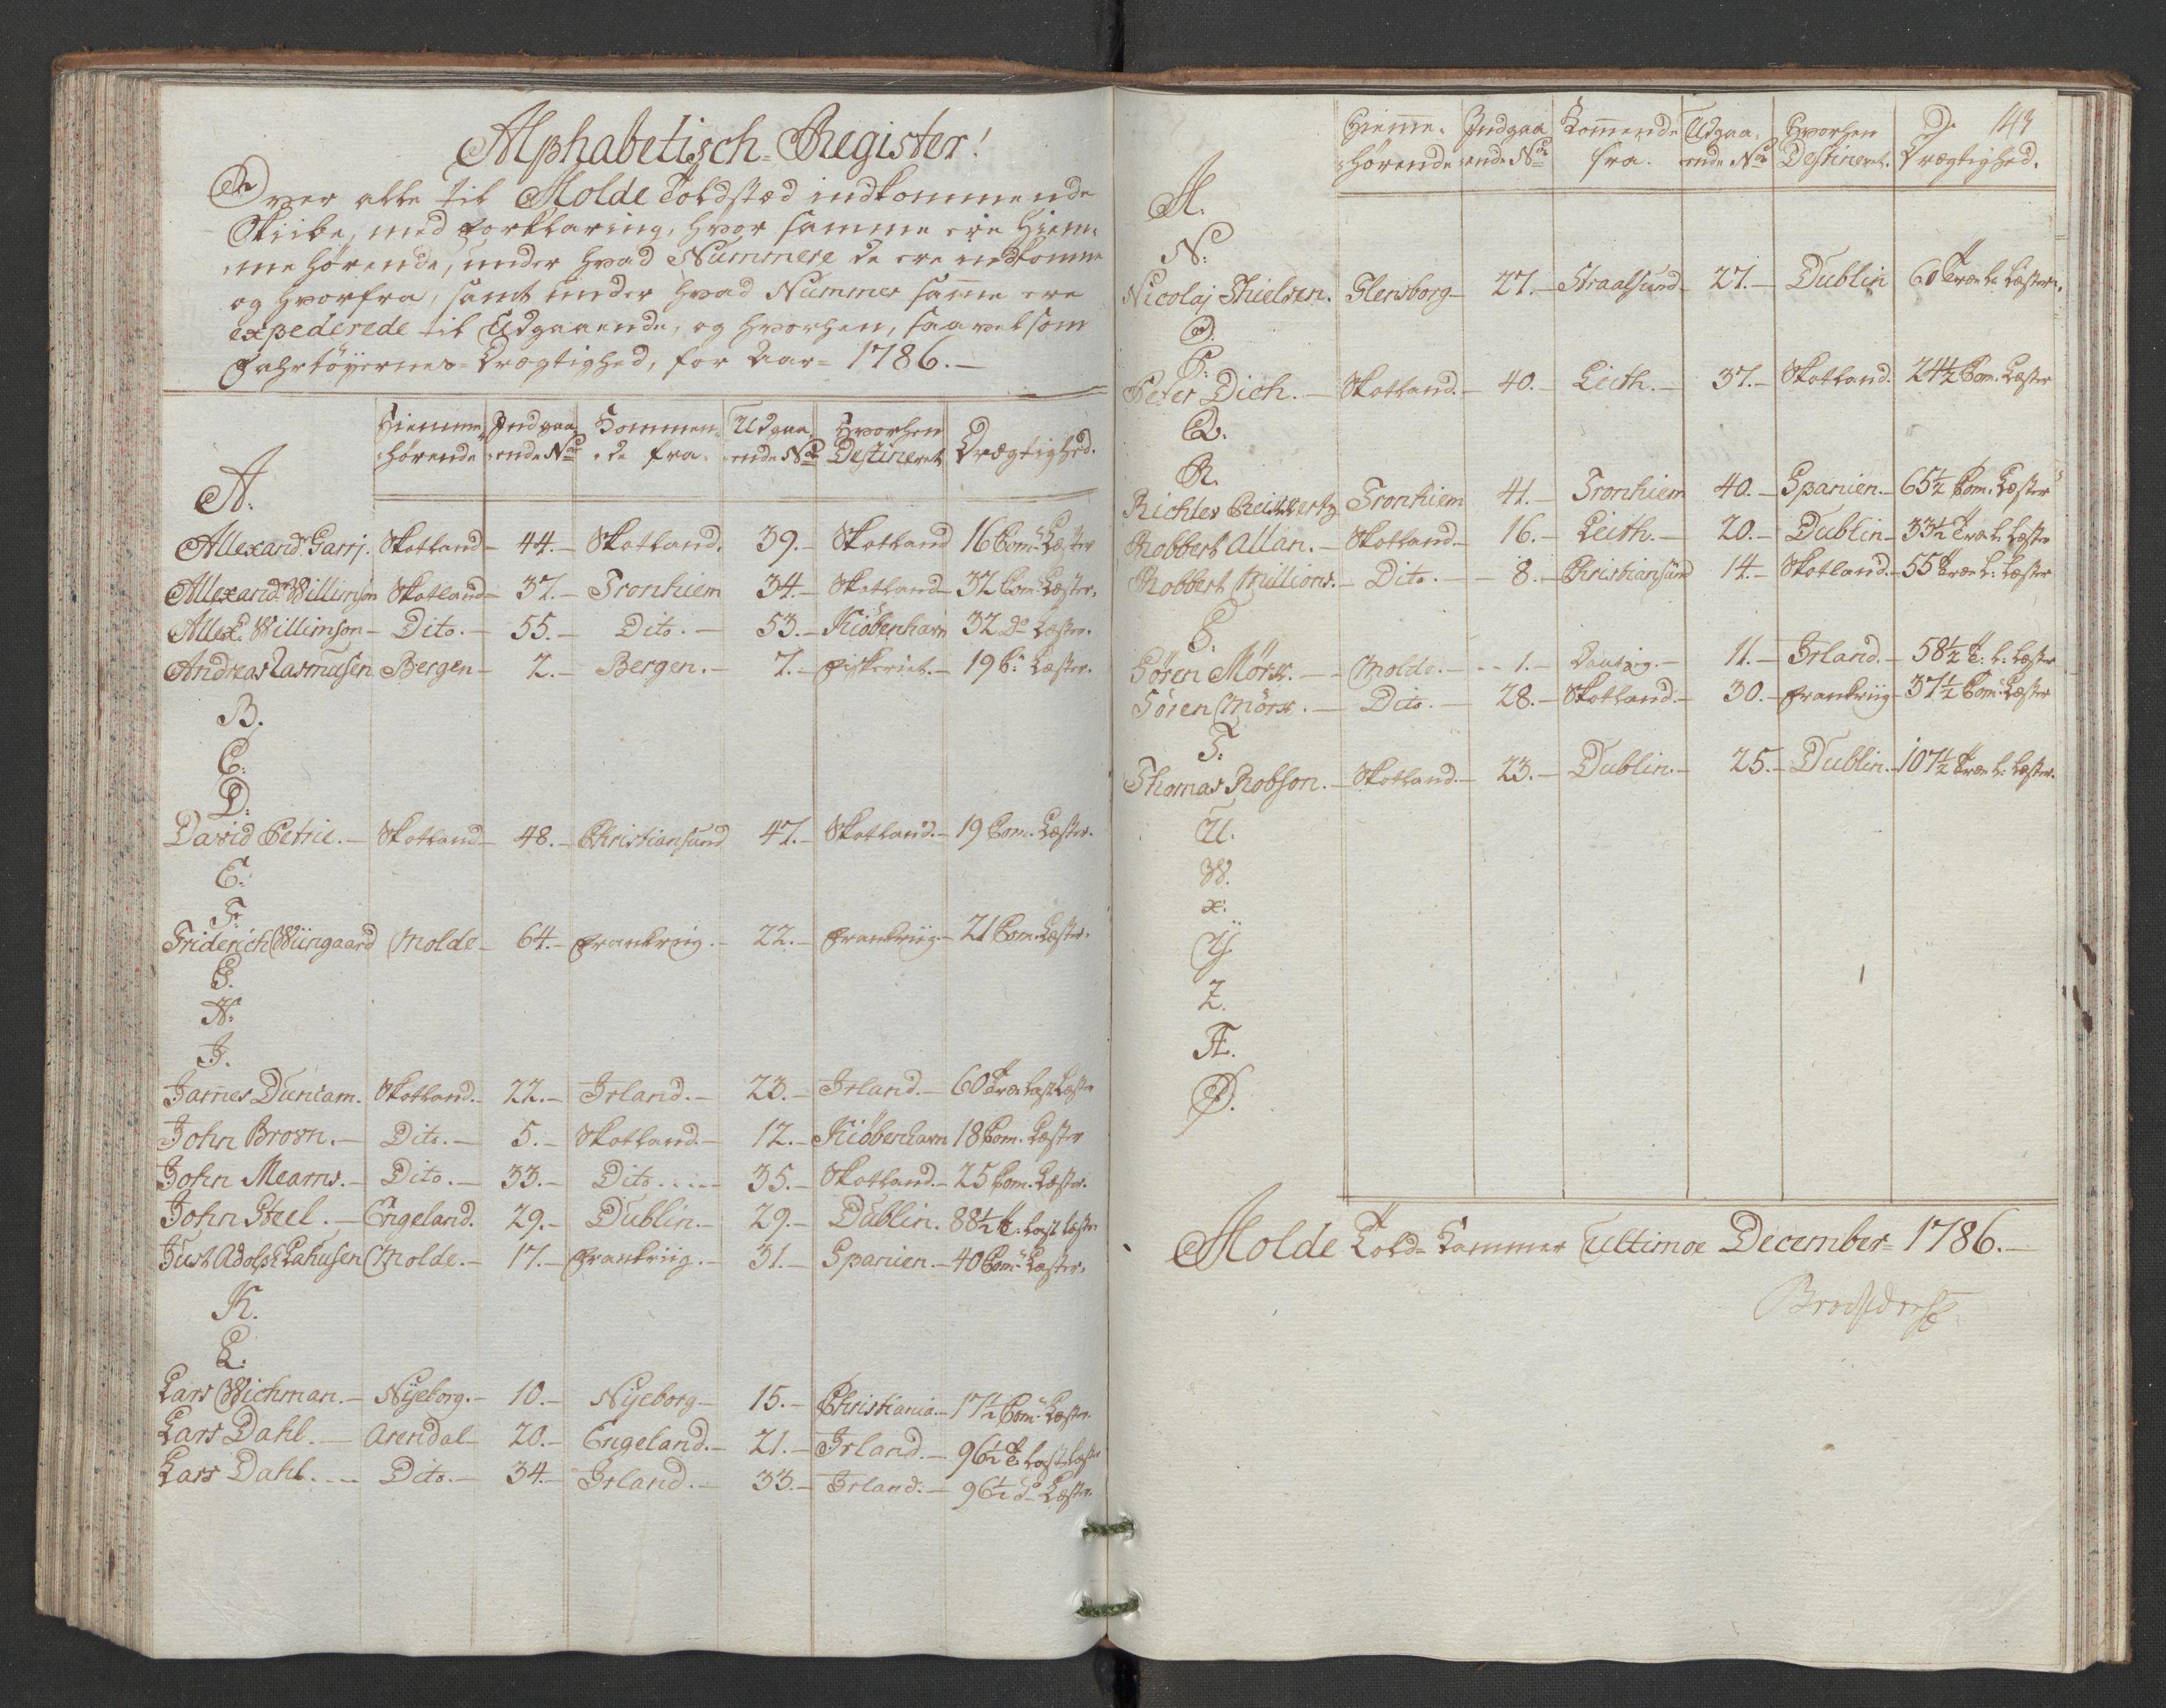 Alphabetisch=Register!
Over alle til Molde Toldsted indkommende
Skiibe, med Forklaring, hvor samme ere Hiem=
=mehørende, under hvad Nummere de ere indkomne
og hvorfra, samt under hvad Nummer samme ere
expederede til Udgaaende, og hvorhen, saavelsom
Fahrtöyernes=Drægtighed, for Aar= 1786.—
Hiemme=hørende Indgaa=ende No Kommen=de fra. Udgaa=ende No Hvorhen Destineret Drægtighed.
A.
Allexand: Garrj. Skotland— 44.— Skotland. 39.— Skotland 16 Com: Læster
Allexand: Willimson Skotland— 37.— Tronhiem 34.— Skotland— 32 Com: Læster.
Allex: Willimson— Dito.— 55.— Dito.— 53.— Kiöbenhavn 32 Do Læster.
Andreas Rasmusen Bergen— 2.— Bergen.— 7.— Fiskeriet.— 19 C: Læster.
B.
C.
D:
David Petrie.— Skotland— 48.— Christiansund 47.— Skotland.— 19 Com. Læster.
E.
F.
Friderich Wiingaard Molde— 64.— Frankriig.— 22.— Frankriig.— 21 Com. Læster.
G.
H.
J.
James Duncam. Skotland.— 22.— Irland.— 23.— Irland.— 60 Træ Last Læster
John Brovn.— Dito.— 5.— Skotland.— 12.— Kiöbenhavn 18 Com. Læster
John Mearns.— Dito.— 33.— Dito..... 35.— Skotland.— 25 Com. Læster.
John Steel.— Engeland. 29.— Dublin.— 29.— Dublin. 88½ T: Last Læster
Just Adolph Lahusen Molde.— 17.— Frankriig.— 31.— Spanien.— 40 Com: Læster.
K.
L.
Lars Wichman.— Nyeborg.— 10.— Nyeborg— 15.— Christiania.— 17½ Com: Læster
Lars Dahl.— Arendal— 20.— Engeland.— 21.— Irland.— 96½ T: Last Læster
Lars Dahl.... Dito.— 34.— Irland.— 33.— Irland.— 96½ do Læster.
143
Hiemme=hørende Indgaaende No Kommende fra. Udgaa=ende No Hvorhen Destineret. Drægtighed.
M.
N.
Nicolaj Thielsen. Flensborg— 27.— Straalsund— 27.— Dublin 60 Træ L: Læster.
O.
P.
Peter Dich.— Skotland.— 40.— Leith.— 37.— Skotland. 24½ Com. Læster
Q.
R.
Richter Tronhiem 41.— Tronhiem 40.— Spanien.— 65½ Com. Læster
Robbert Allan.— Skotland— 16.— Leith.— 20.— Dublin— 33½ Træ L: Læster
Robbert Millions.— Dito.— 8.— Christiansund 14.— Skotland.— 55 Træ L: Læster
S.
Søren Mörx.— Molde.— 1.— Dantzig.— 11.— Irland.— 58½ T: L: Læster
Søren Mörx.— Dito.— 28.— Skotland.— 30.— Frankriig— 37½ Com: Læster
T.
Thomas Robson.— Skotland.— 23.— Dublin.— 25.— Dublin.— 107½ Træ L: Læster.
U.
W.
x.
Y.
Z.
Æ.
Ø.
Molde Told=Kammer Ultimoe December= 1786.—